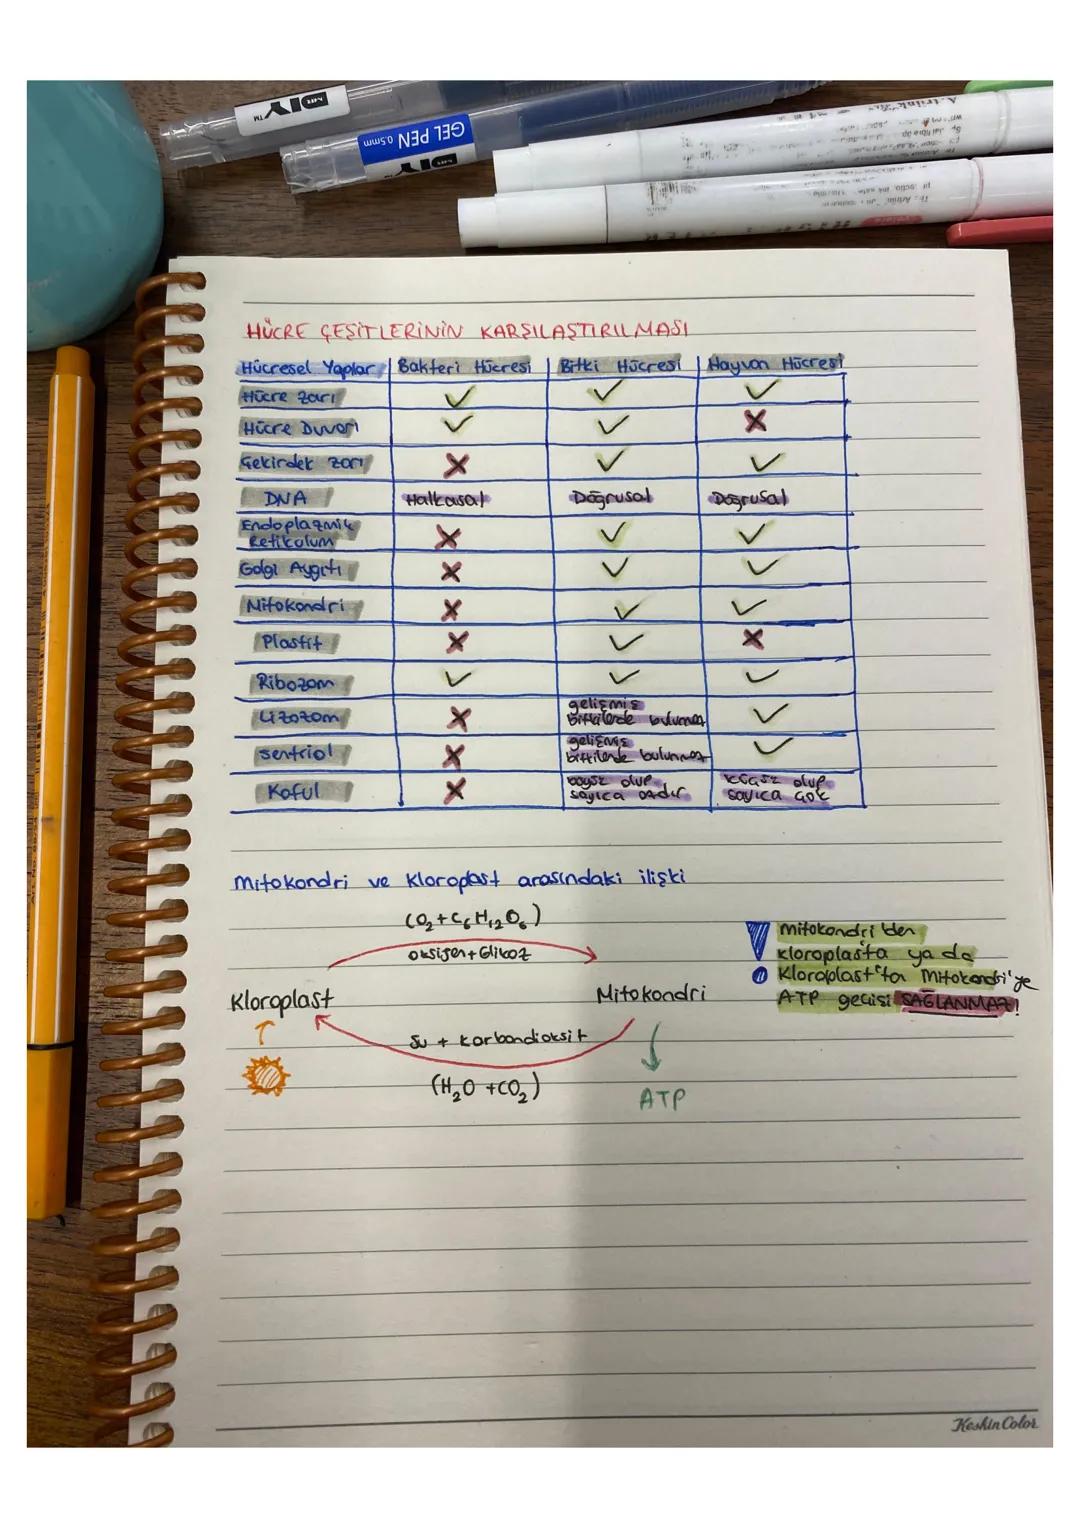 DIY
GEL PEN 0.5mm
HÜCRE ÇEŞİTLERİNİN KARŞILAŞTIRILMASI
Hücresel Yapılar Bakteri Hücresi Bitki Hücresi Hayvan Hücresi
Hücre zarı ✓ ✓ ✓
Hücre Duvarı ✓ ✓ X
Çekirdek zarı X ✓ ✓
DNA Halkasal Doğrusal Doğrusal
Endoplazmik
Retikulum X ✓ ✓
Golgi Aygıtı X ✓ ✓
Mitokondri X ✓ ✓
Plastit X ✓ X
Ribozom ✓ ✓ ✓
Lizozom X gelişmiş bitkilerde bulunmaz ✓
Sentriol X gelişmiş bitkilerde bulunmaz ✓
Koful X sayıca azdır sayıca çok
Mitokondri ve Kloroplast arasındaki ilişki
(O₂+C₆H₁₂O₆)
oksijen+Glikoz
Kloroplast Mitokondri
Su + karbondioksit
(H₂O +CO₂)
ATP
Mitokondri'den
kloroplasta ya da
Kloroplast'ta Mitokondri'ye
ATP geçişi SAĞLANMAZ!
KeskinColor